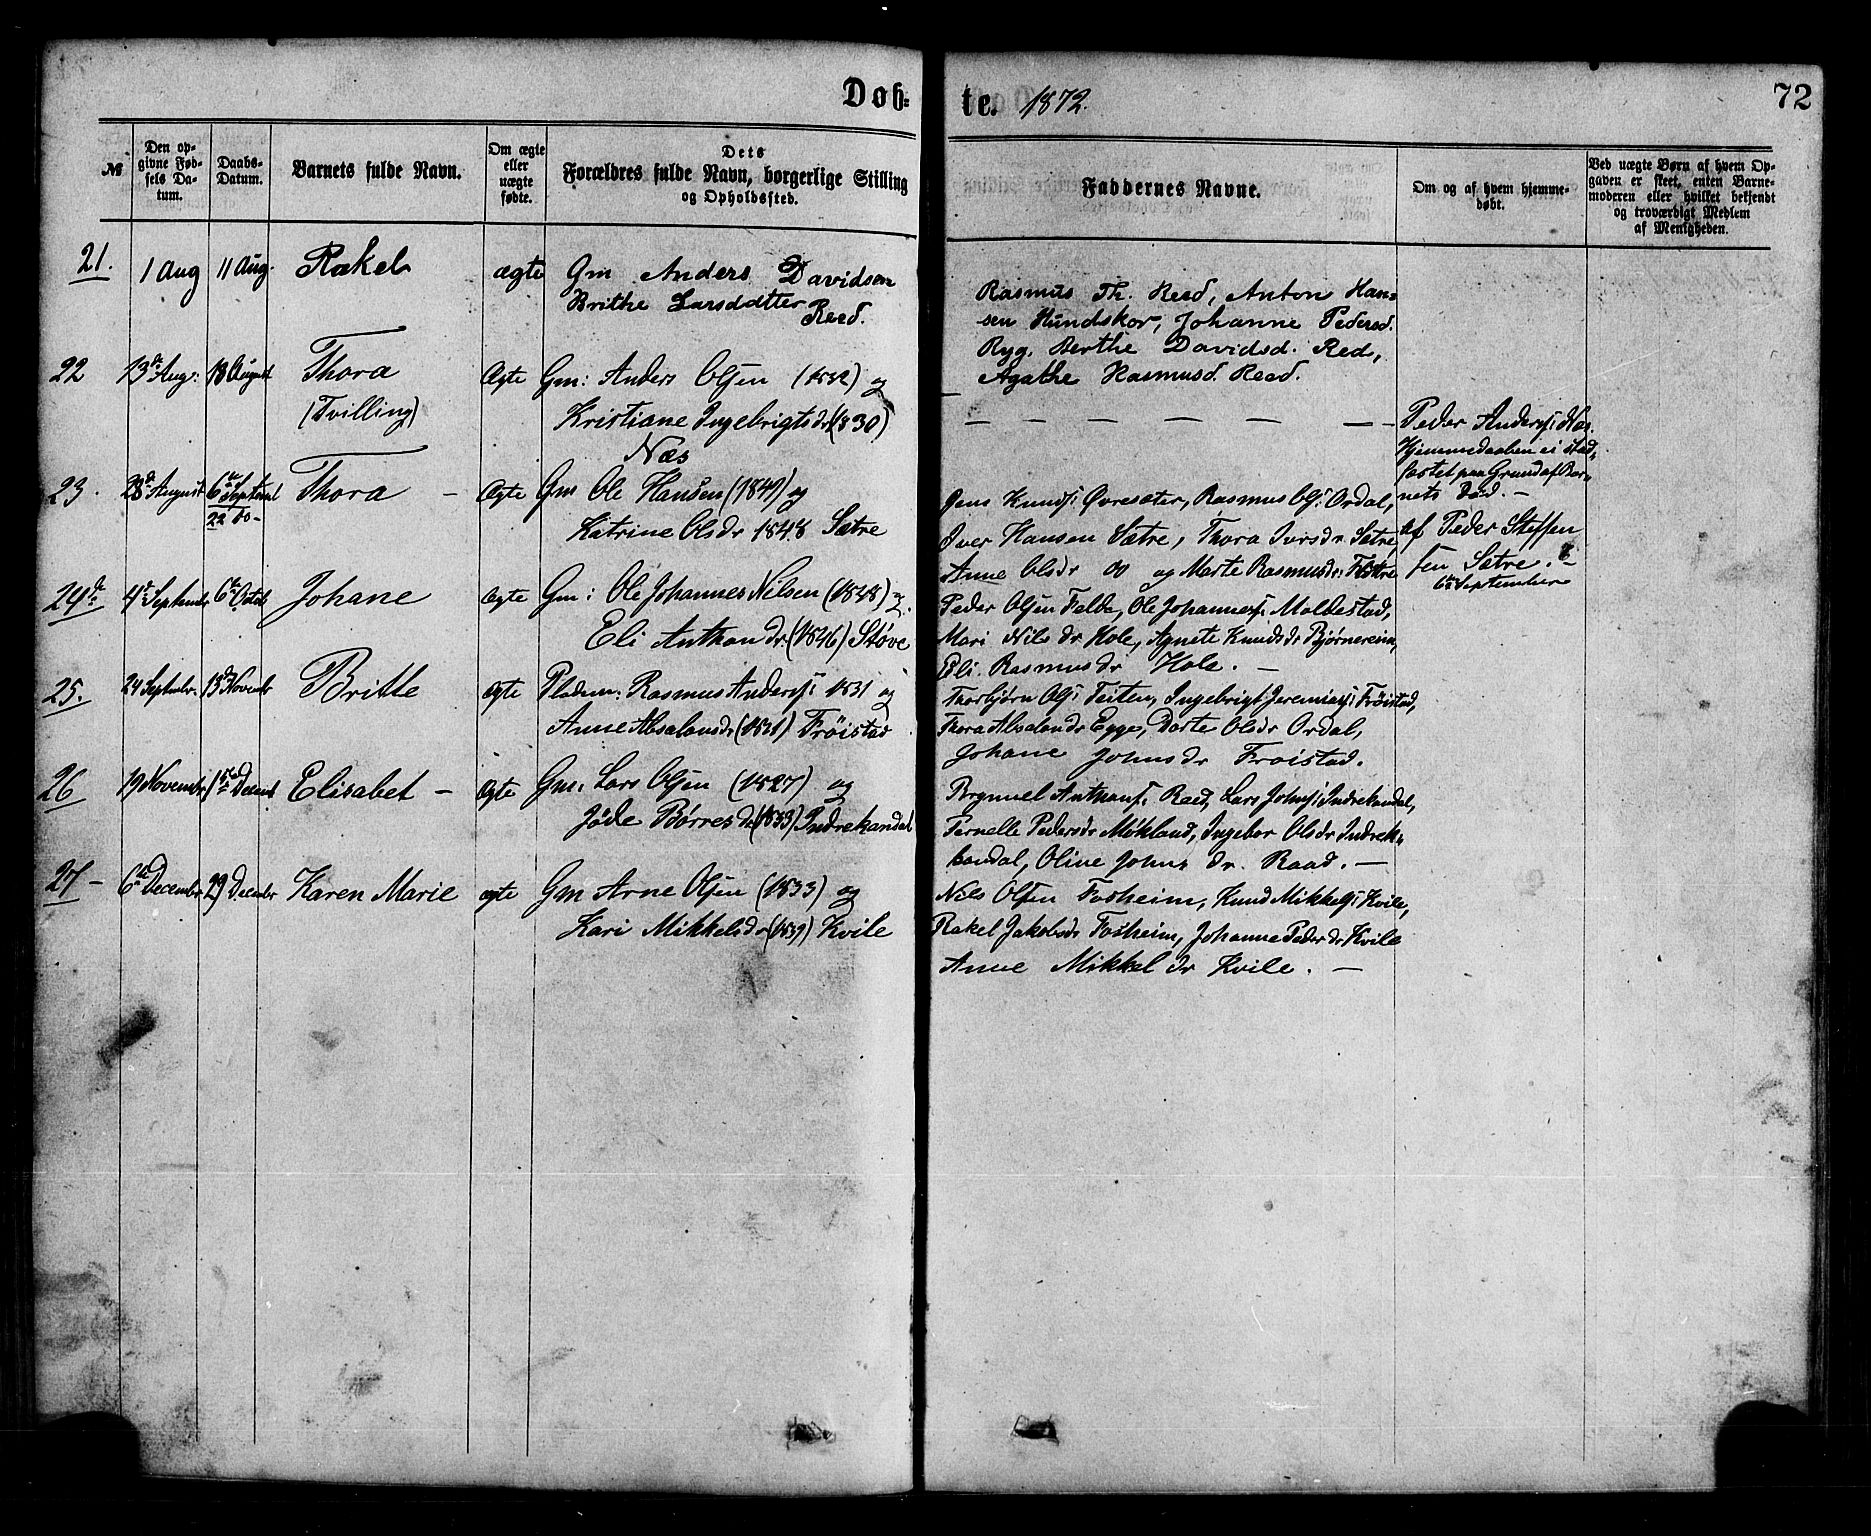 Døb-
te. 1872.
72
№
Den op-
givne Fød-
sels Da-
tum.
Daabs-
Datum.
Barnets fulde Navn.
Om ægte
eller
uægte
fødte.
Dets
Forældres fulde Navn, borgerlige Stilling
og Opholdssted.
Faddernes Navne.
Om og af hvem hjemme-
døbt.
Ved uægte Børn af hvem Op-
gaven er skeet, enten Barne-
moderen eller hvilket bekjendt
og troværdigt Medlem
af Menigheden.
21. 1 Aug 11 Aug. Rakel ægte Gm Anders Davidsen
Brithe Larsdatter
Reed.
Rasmus Th. Reed, Anton Han-
sen Hundskor, Johanne Pedersd.
Ryg. Berthe Davidsd. Red,
Agathe Rasmusd. Reed.
22 13de Aug: 18 August Thora Ægte Gm: Anders Olsen (1832) og
(Tvilling) Kristiane Ingebrigtsdr (1830)
Næs
— — — — — —
Peder Anders: Næs.
Hjemmedaaben ei stad-
fæstet paa Grund af Bar-
nets Død. —
23. 28d August 6te Septembr Thora — Ægte Gm Ole Hansen (1849) og
22 do - Katrine Olsdr 1848 Sætre
Jens Knuds: Øvresæter, Rasmus Ols: Ordal,
Iver Hansen Sætre, Thora Iversdr Sætre,
Anne Olsdr do og Marte Rasmusdr: Flotre
af Peder Steffen
sen Sætre. —
6te September
24de 4de Septembr 6te Octob Johane Ægte Gm: Ole Johannes Nilsen (1848) og
Eli Anthondr: (1846) Støve
Peder Olsen Felde, Ole Johannes: Moldestad,
Mari Nilsdr Hole, Agnete Knudsdr Bjørnereim,
Eli Rasmusdr Hole. —
25. 24 Septembr. 13de Novembr Britte Ægte Pladsm: Rasmus Anders: 1831 og
Anne Absalonsdr (1831) Frøistad
Thorbjørn Ols: Teiten, Ingebrigt Jeremias: Frøistad,
Thora Absalondr Egge, Dorte Olsdr Ordal,
Johane Johnsdr Frøistad.
26 19 Novembr 15de Decemb Elisabet — Ægte Gm: Lars Olsen (1827) og
Jøde Børresdr (1833) Indrekandal
Brynnel Anthons: Raad, Lars Johns: Indrekandal,
Pernelle Pedersdr Møkland, Ingebor Olsdr Indrek-
kandal, Oline Johnsdr. Raad. —
27 — 6te Decembr 29 Decembr Karen Marie ægte Gm Arne Olsen (1833) og
Kari Mikkelsdr (1839) Kvile
Nils Olsen Fosheim, Knud Mikkels: Kvile,
Rakel Jakobsdr Fosheim, Johanne Pederdr Kvile
Anne Mikkeldr Kvile. —